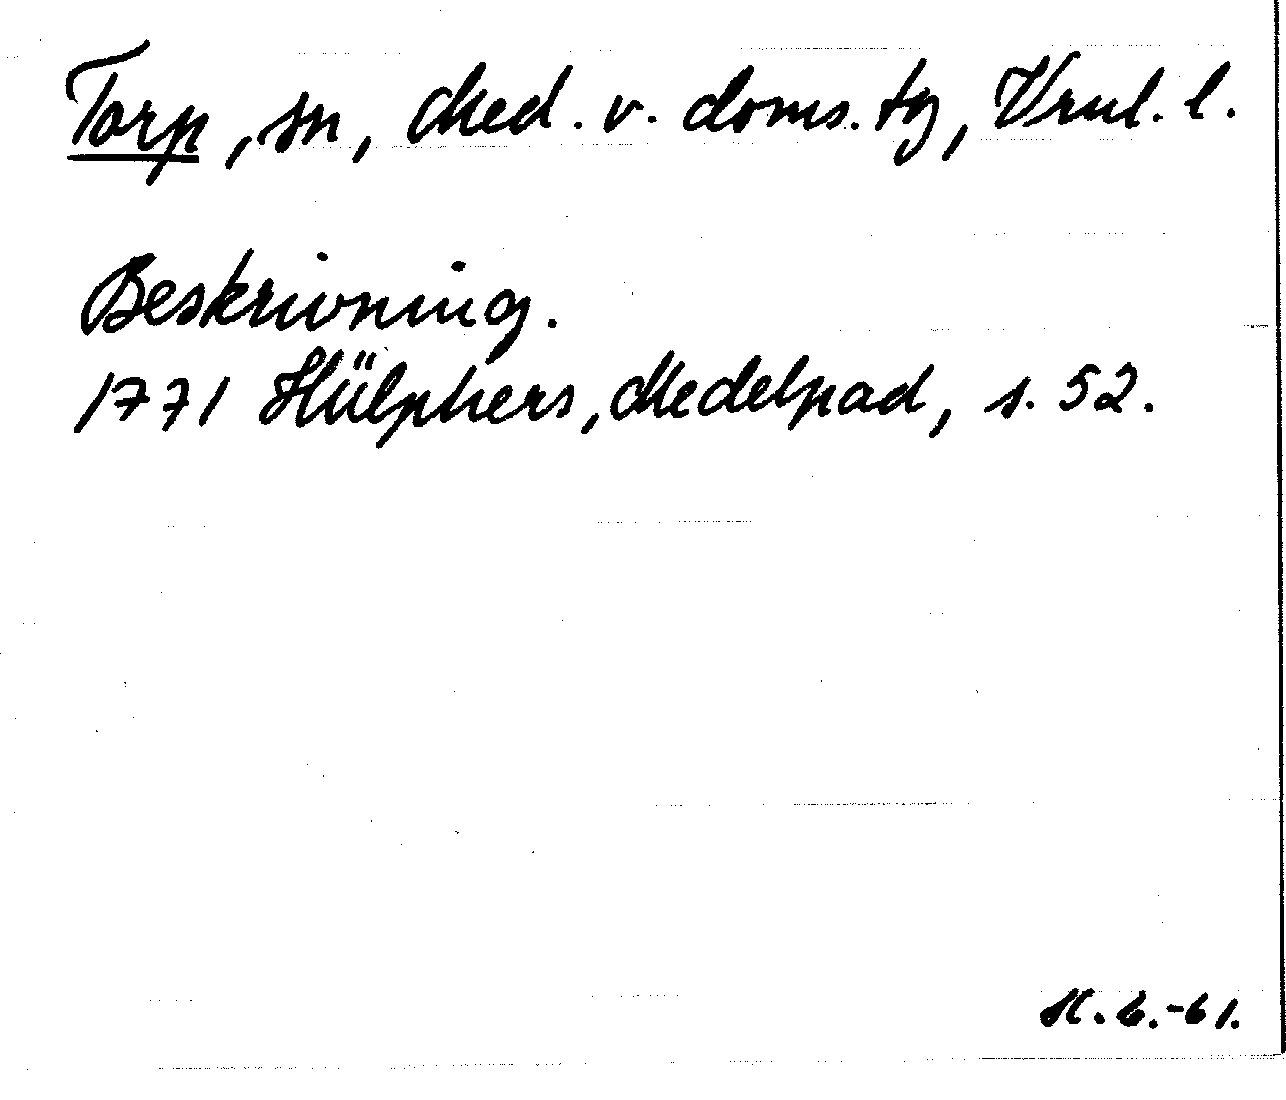 Torp, sn, Med. v. doms. tg, Vrnl. l.
Beskrivning.
1771 Hülphers, Medelpad, s. 52.
H. G. -61.